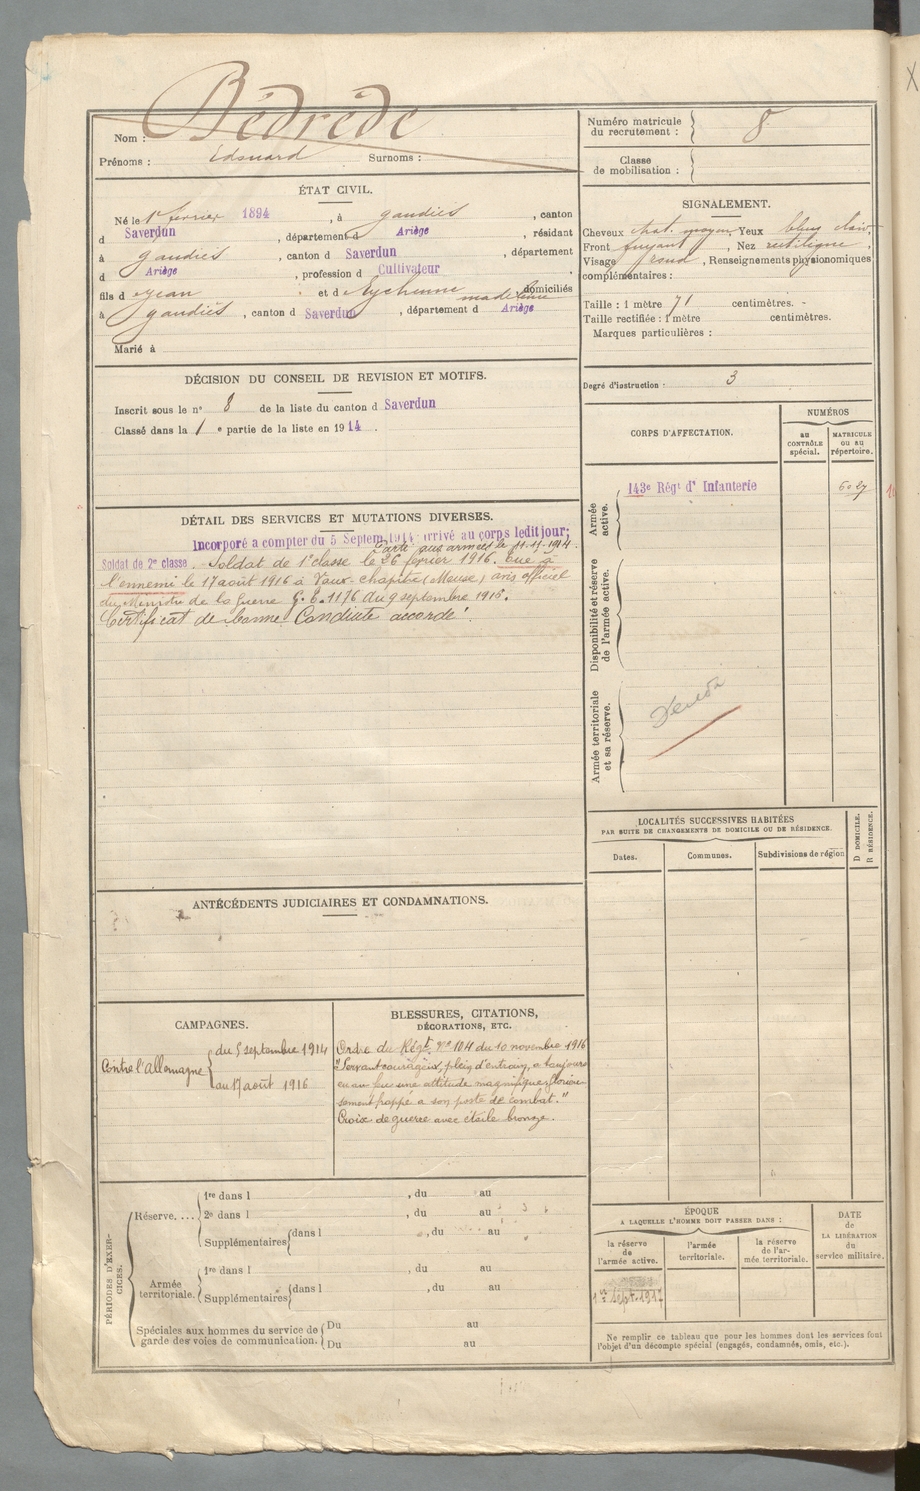 Nom : Bédrède
Prénoms : Edouard Surnoms :
Numéro matricule du recrutement : 8
Classe de mobilisation :
ÉTAT CIVIL.
Né le 1er fevrier 1894, à gaudiés, canton
d Saverdun, département d Ariège, résidant
à gaudiés, canton d Saverdun, département
d Ariège, profession d Cultivateur,
fils d Jean et d Eychenne madeleine domiciliés
à gaudiés, canton d Saverdun, département d Ariège
Marié à
SIGNALEMENT.
Cheveux chat. moyen, Yeux bleus clair,
Front fuyant, Nez rectiligne,
Visage rond, Renseignements physionomiques
complémentaires :
Taille : 1 mètre 71 centimètres.
Taille rectifiée : 1 mètre centimètres.
Marques particulières :
Degré d'instruction : 3
DÉCISION DU CONSEIL DE REVISION ET MOTIFS.
Inscrit sous le n° 8 de la liste du canton d Saverdun
Classé dans la 1 e partie de la liste en 1914.
CORPS D'AFFECTATION.
NUMÉROS
au CONTRÔLE spécial.
MATRICULE ou au répertoire.
Armée active.
143e Régt d' Infanterie 6027
Disponibilité et réserve de l'armée active.
Armée territoriale et sa réserve.
DÉTAIL DES SERVICES ET MUTATIONS DIVERSES.
Incorporé a compter du 5 Septem. 1914 arrivé au corps ledit jour;
Parti aux armées le 11.11.1914.
Soldat de 2e classe. Soldat de 1e classe le 26 fevrier 1916. Tué à
l'ennemi le 17 août 1916 à Vaux-chapitre (Meuse) avis officiel
du Ministre de la Guerre G. E. 1176 du 9 septembre 1916.
Certificat de bonne Conduite accordé.
LOCALITÉS SUCCESSIVES HABITÉES
PAR SUITE DE CHANGEMENTS DE DOMICILE OU DE RÉSIDENCE.
Dates. Communes. Subdivisions de région
D DOMICILE.
R RÉSIDENCE.
ANTÉCÉDENTS JUDICIAIRES ET CONDAMNATIONS.
CAMPAGNES.
Contre l'Allemagne
du 5 septembre 1914
au 17 août 1916
BLESSURES, CITATIONS,
DÉCORATIONS, ETC.
Ordre du Régt. n° 104 du 10 novembre 1916
"Servant courageux, plein d'entrain, a toujours
eu au feu une attitude magnifique, glorieu-
sement frappé a son poste de combat."
Croix de guerre avec étoile bronze.
PÉRIODES D'EXERCICES.
Réserve....
1re dans l , du au
2e dans l , du au
Supplémentaires dans l , du au
Armée territoriale.
1re dans l , du au
Supplémentaires dans l , du au
Spéciales aux hommes du service de garde des voies de communication.
Du au
Du au
ÉPOQUE
A LAQUELLE L'HOMME DOIT PASSER DANS :
la réserve de l'armée active.
l'armée territoriale.
la réserve de l'armée territoriale.
DATE de LA LIBÉRATION du service militaire.
1er Sept. 1917
Ne remplir ce tableau que pour les hommes dont les services font
l'objet d'un décompte spécial (engagés, condamnés, omis, etc.).